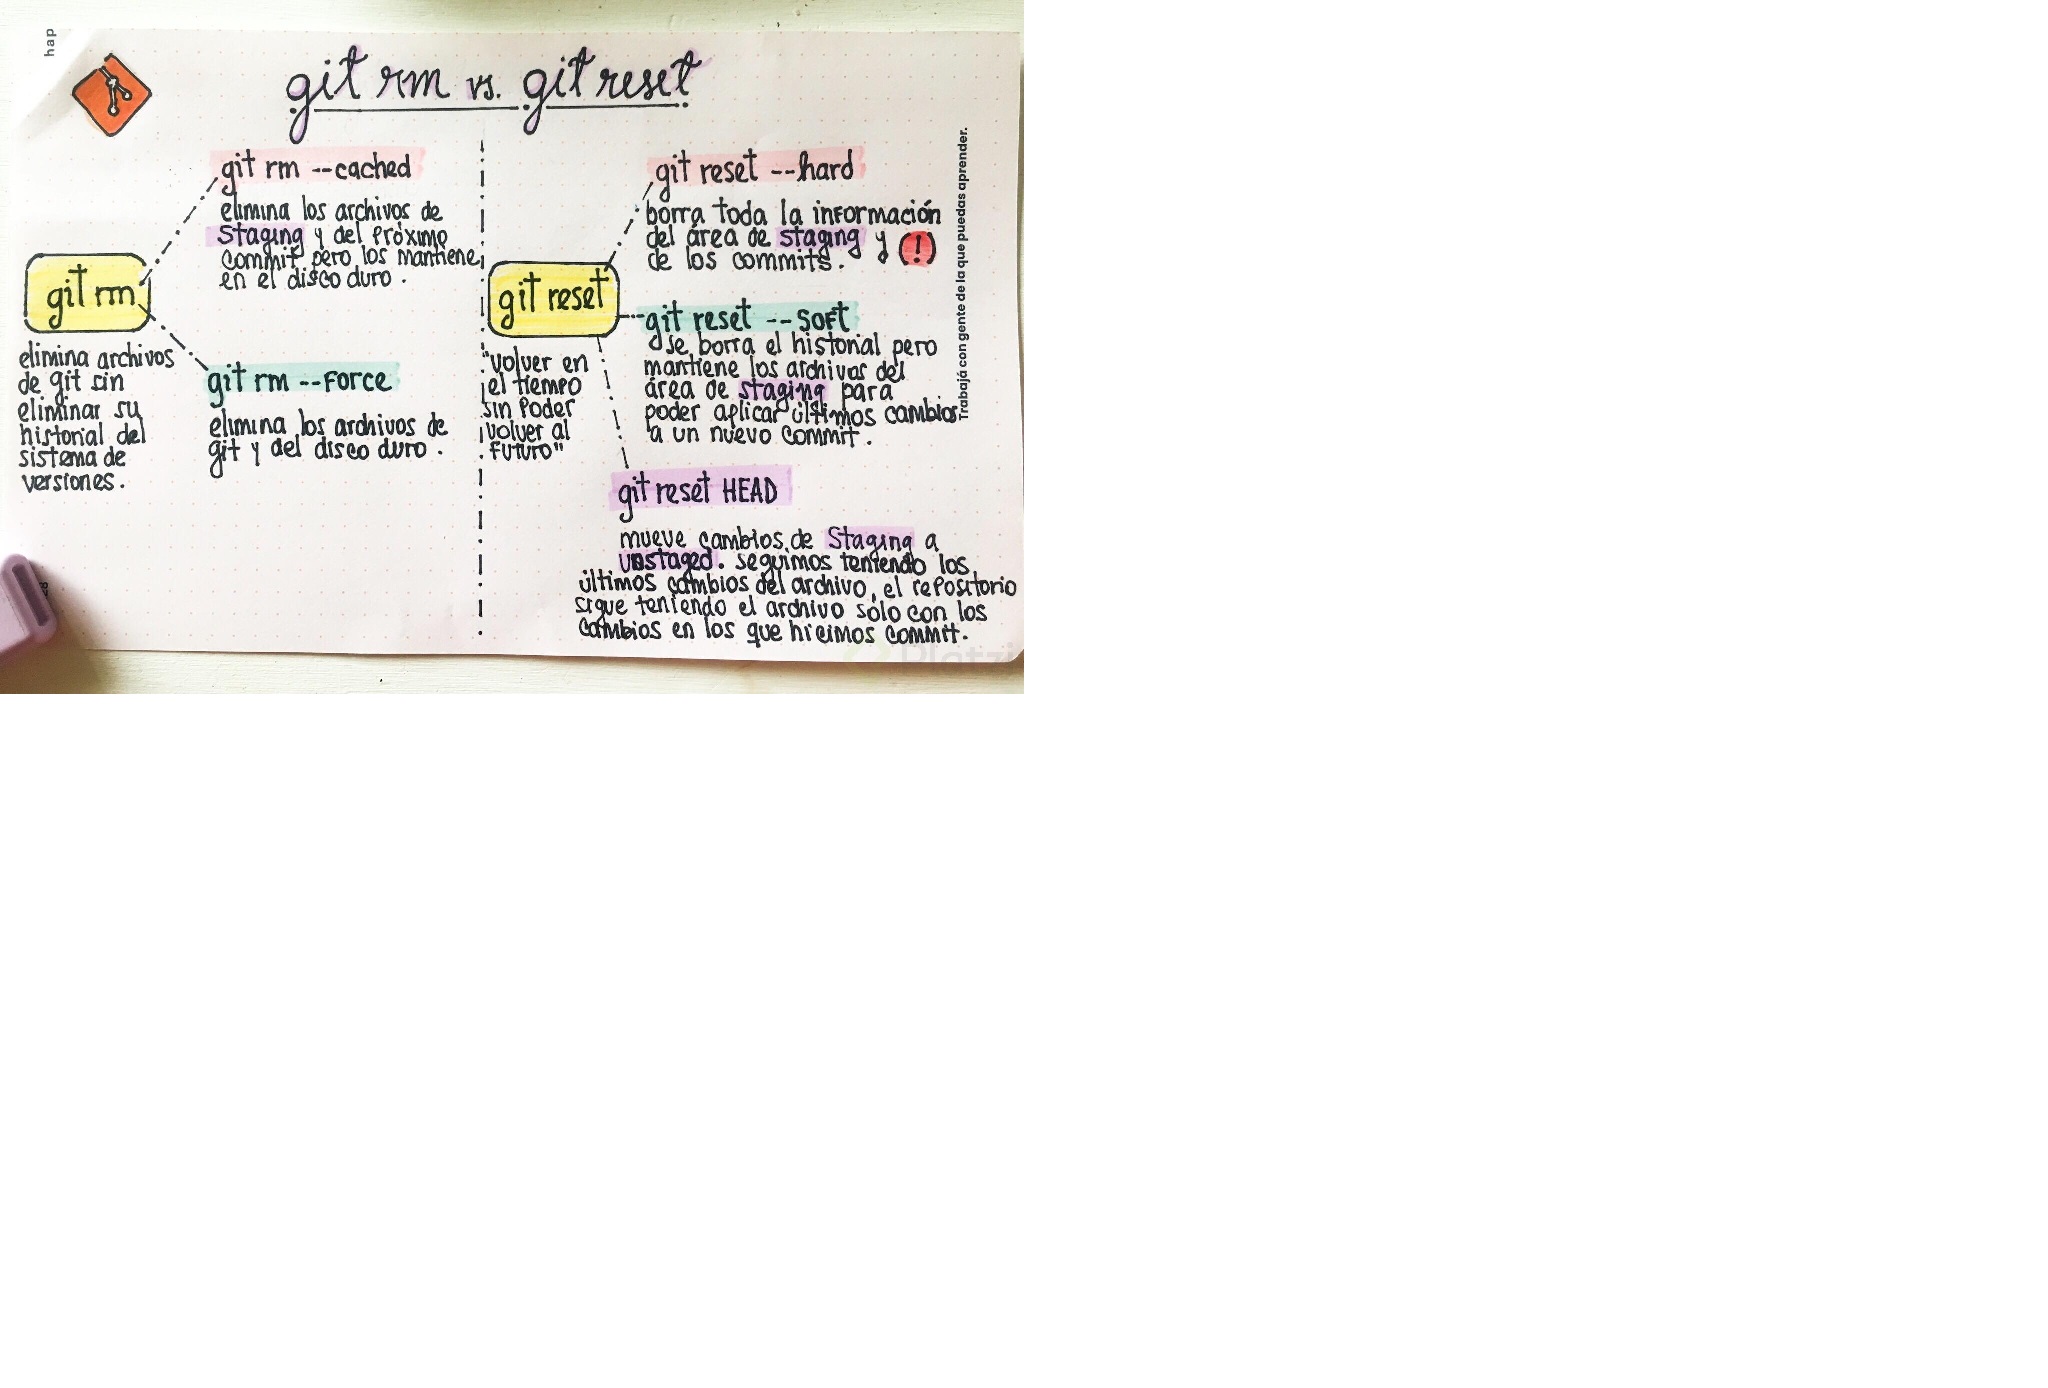 hap
git rm vs. git reset
git rm
elimina archivos
de git sin
eliminar su
historial del
sistema de
versiones.
git rm --cached
elimina los archivos de
Staging y del próximo
commit pero los mantiene
en el disco duro.
git rm --force
elimina los archivos de
git y del disco duro.
git reset
"volver en
el tiempo
sin poder
volver al
futuro"
git reset --hard
borra toda la información
del área de staging y (!)
de los commits.
git reset --soft
se borra el historial pero
mantiene los archivos del
área de staging para
poder aplicar últimos cambios
a un nuevo commit.
git reset HEAD
mueve cambios de Staging a
unstaged. seguimos teniendo los
últimos cambios del archivo, el repositorio
sigue teniendo el archivo sólo con los
cambios en los que hicimos commit.
Trabajá con gente de la que puedas aprender.
Platzi